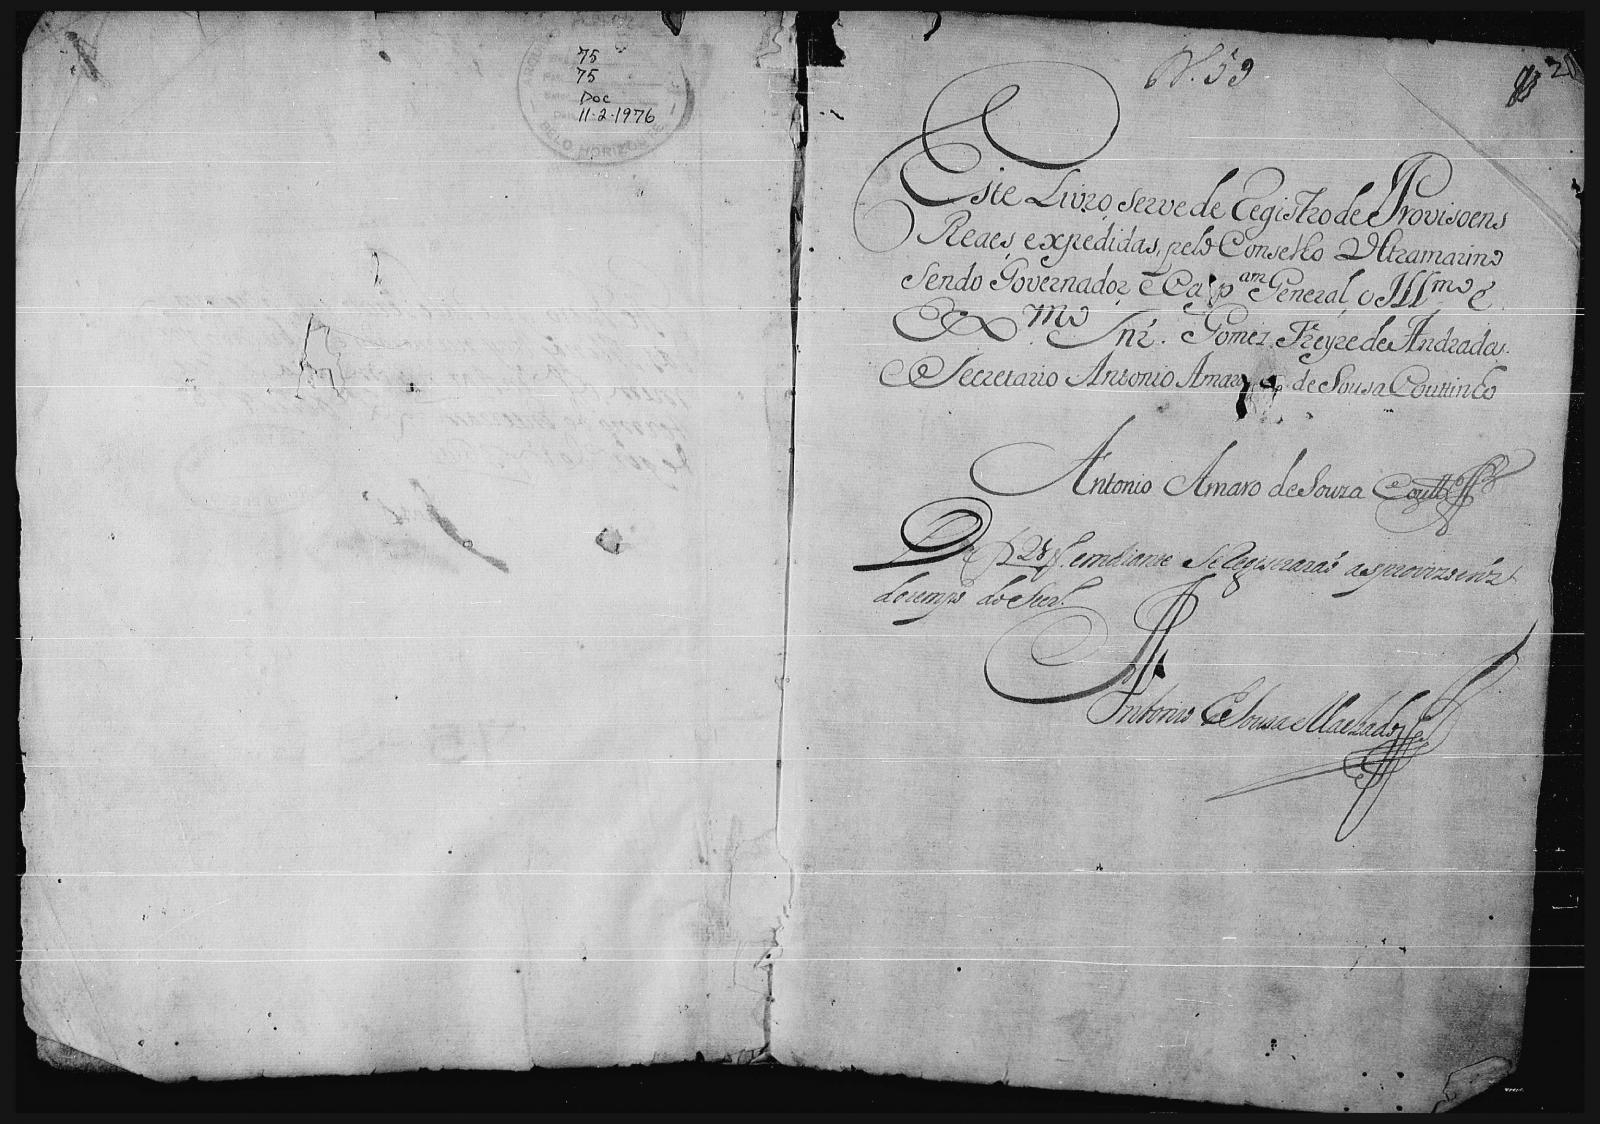 75
75
Doc
11-2-1976
BELO HORIZONTE
N. 59
Este Livro serve de Registro de Provisoens
Reaes, expedidas, pelo Conselho Ultramarino
Sendo Governador e Cap.am General o Illmo e
Exmo Snr. Gomez Freyre de Andrada.
E Secretario Antonio Amaro de Sousa Couttinho
Antonio Amaro de Souza Coutto
De f 28 em diante se registrarão as provizoins
do tempo do
Antonio de Sousa Machado